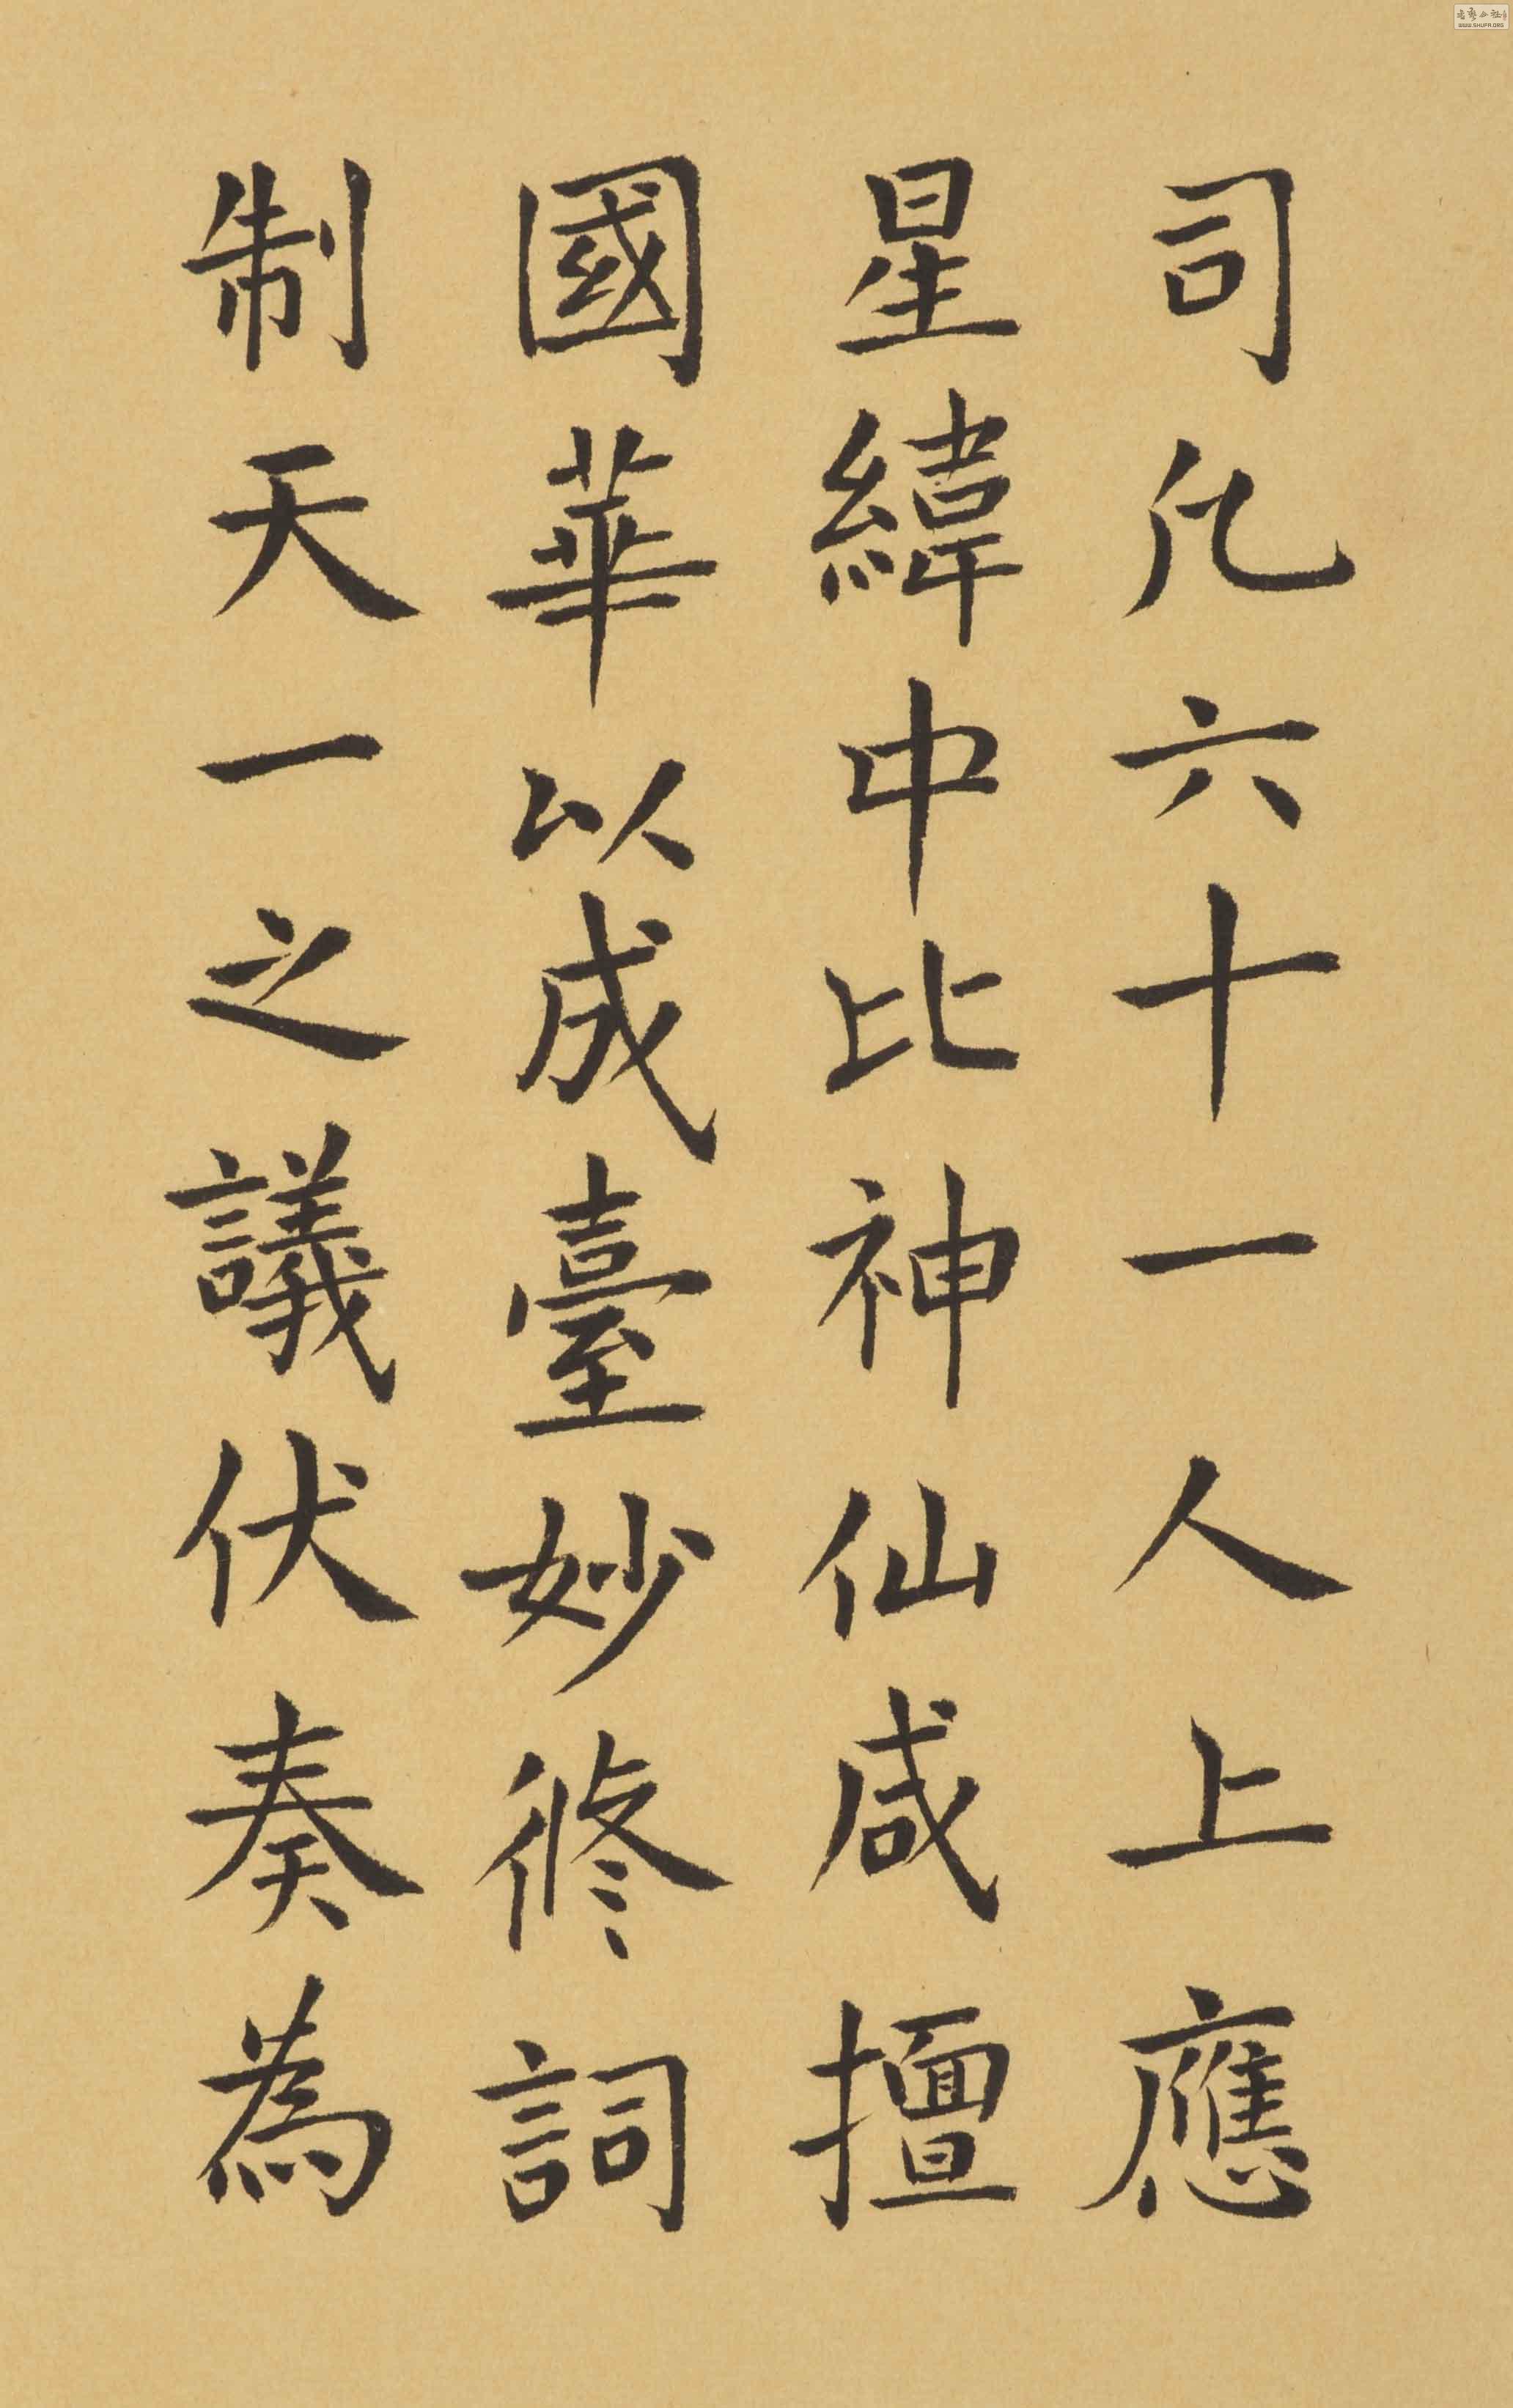 司凡六十一人上應
星緯中比神仙咸擅
國華以成臺妙修詞
制天一之議伏奏為
WWW.SHUFA.ORG